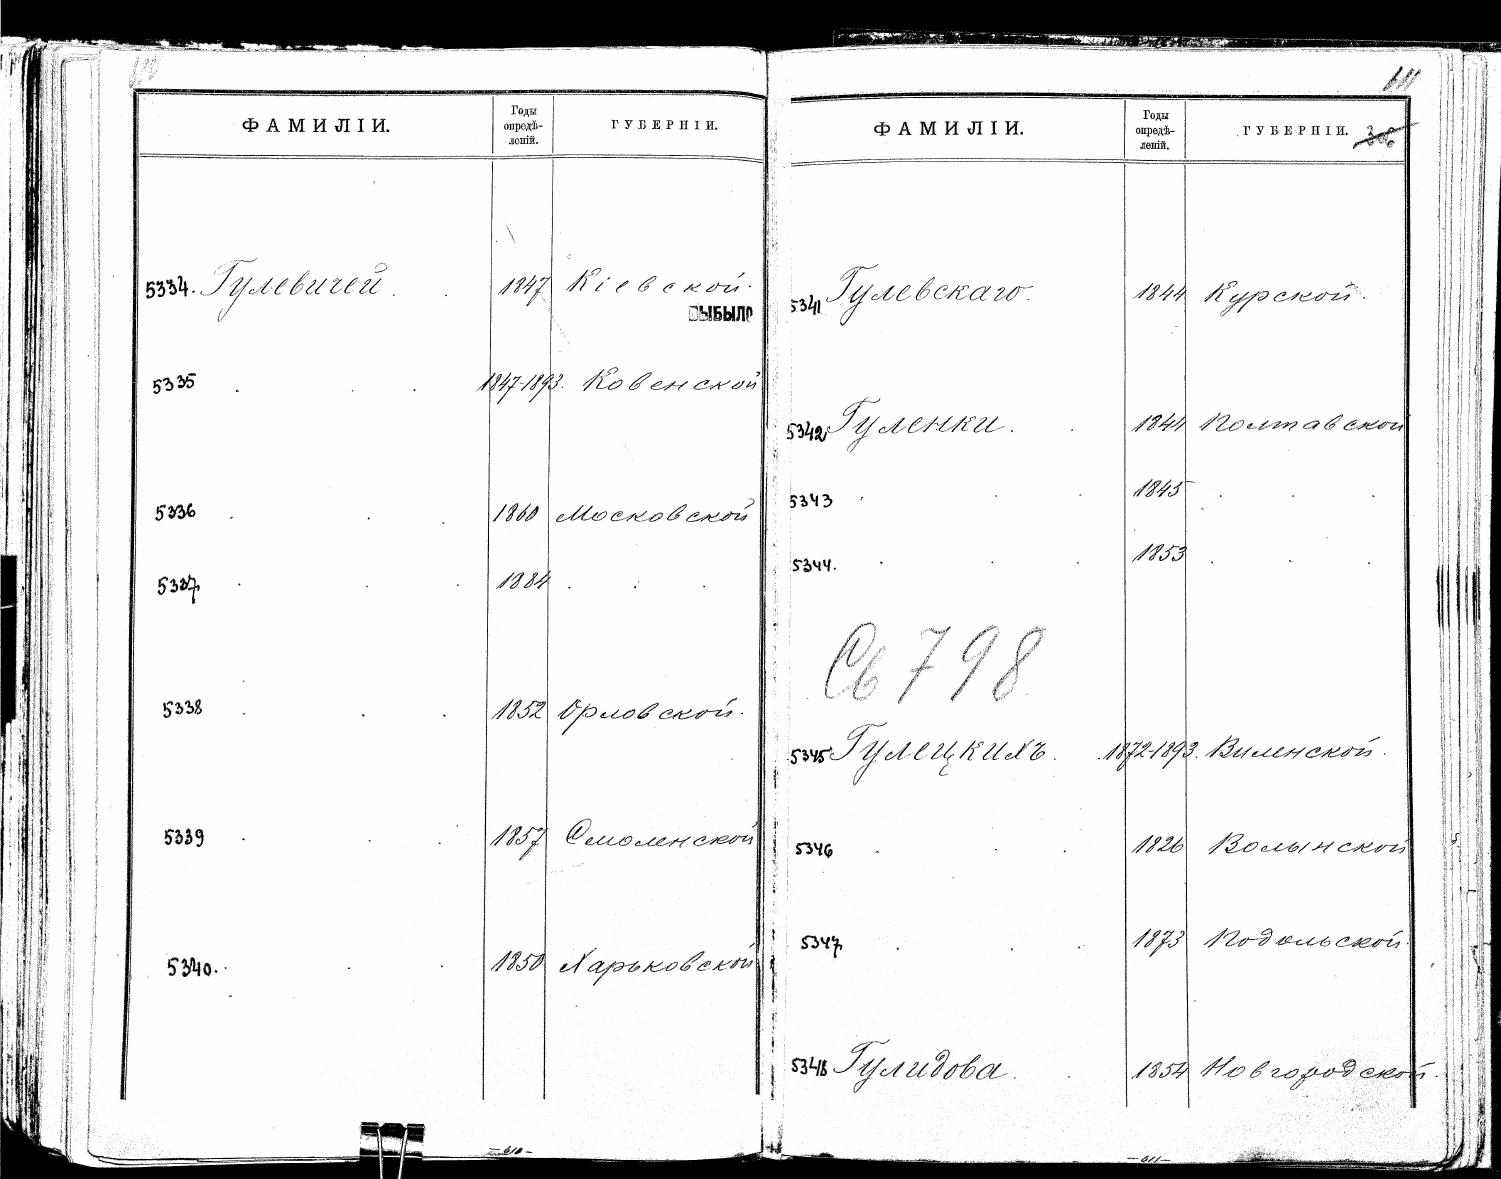 ФАМИЛІИ. Годы опредѣ-леній. ГУБЕРНІИ.
5334. Гулевичей . . 1847 Кіевской.
ВЫБЫЛО
5335 . . . 1847-1893. Ковенской
5336 . . . 1860 Московской
5337 . . . 1884 . . .
5338 . . . 1852 Орловской.
5339 . . . 1857 Смоленской
5340. . . . 1850 Харьковской
-610-
611
ФАМИЛІИ. Годы опредѣ-леній. ГУБЕРНІИ.
5341 Гулевскаго. 1844 Курской.
5342 Гуленки . . 1844 Полтавской
5343 . . . 1845 . . .
5344. . . . 1853 . . .
Св 798
5345 Гулецкихъ. . 1872-1893. Виленской.
5346 . . . 1826 Волынской
5347 . . . 1873 Подольской.
5348 Гулидова . . 1854 Новгородской.
-611-